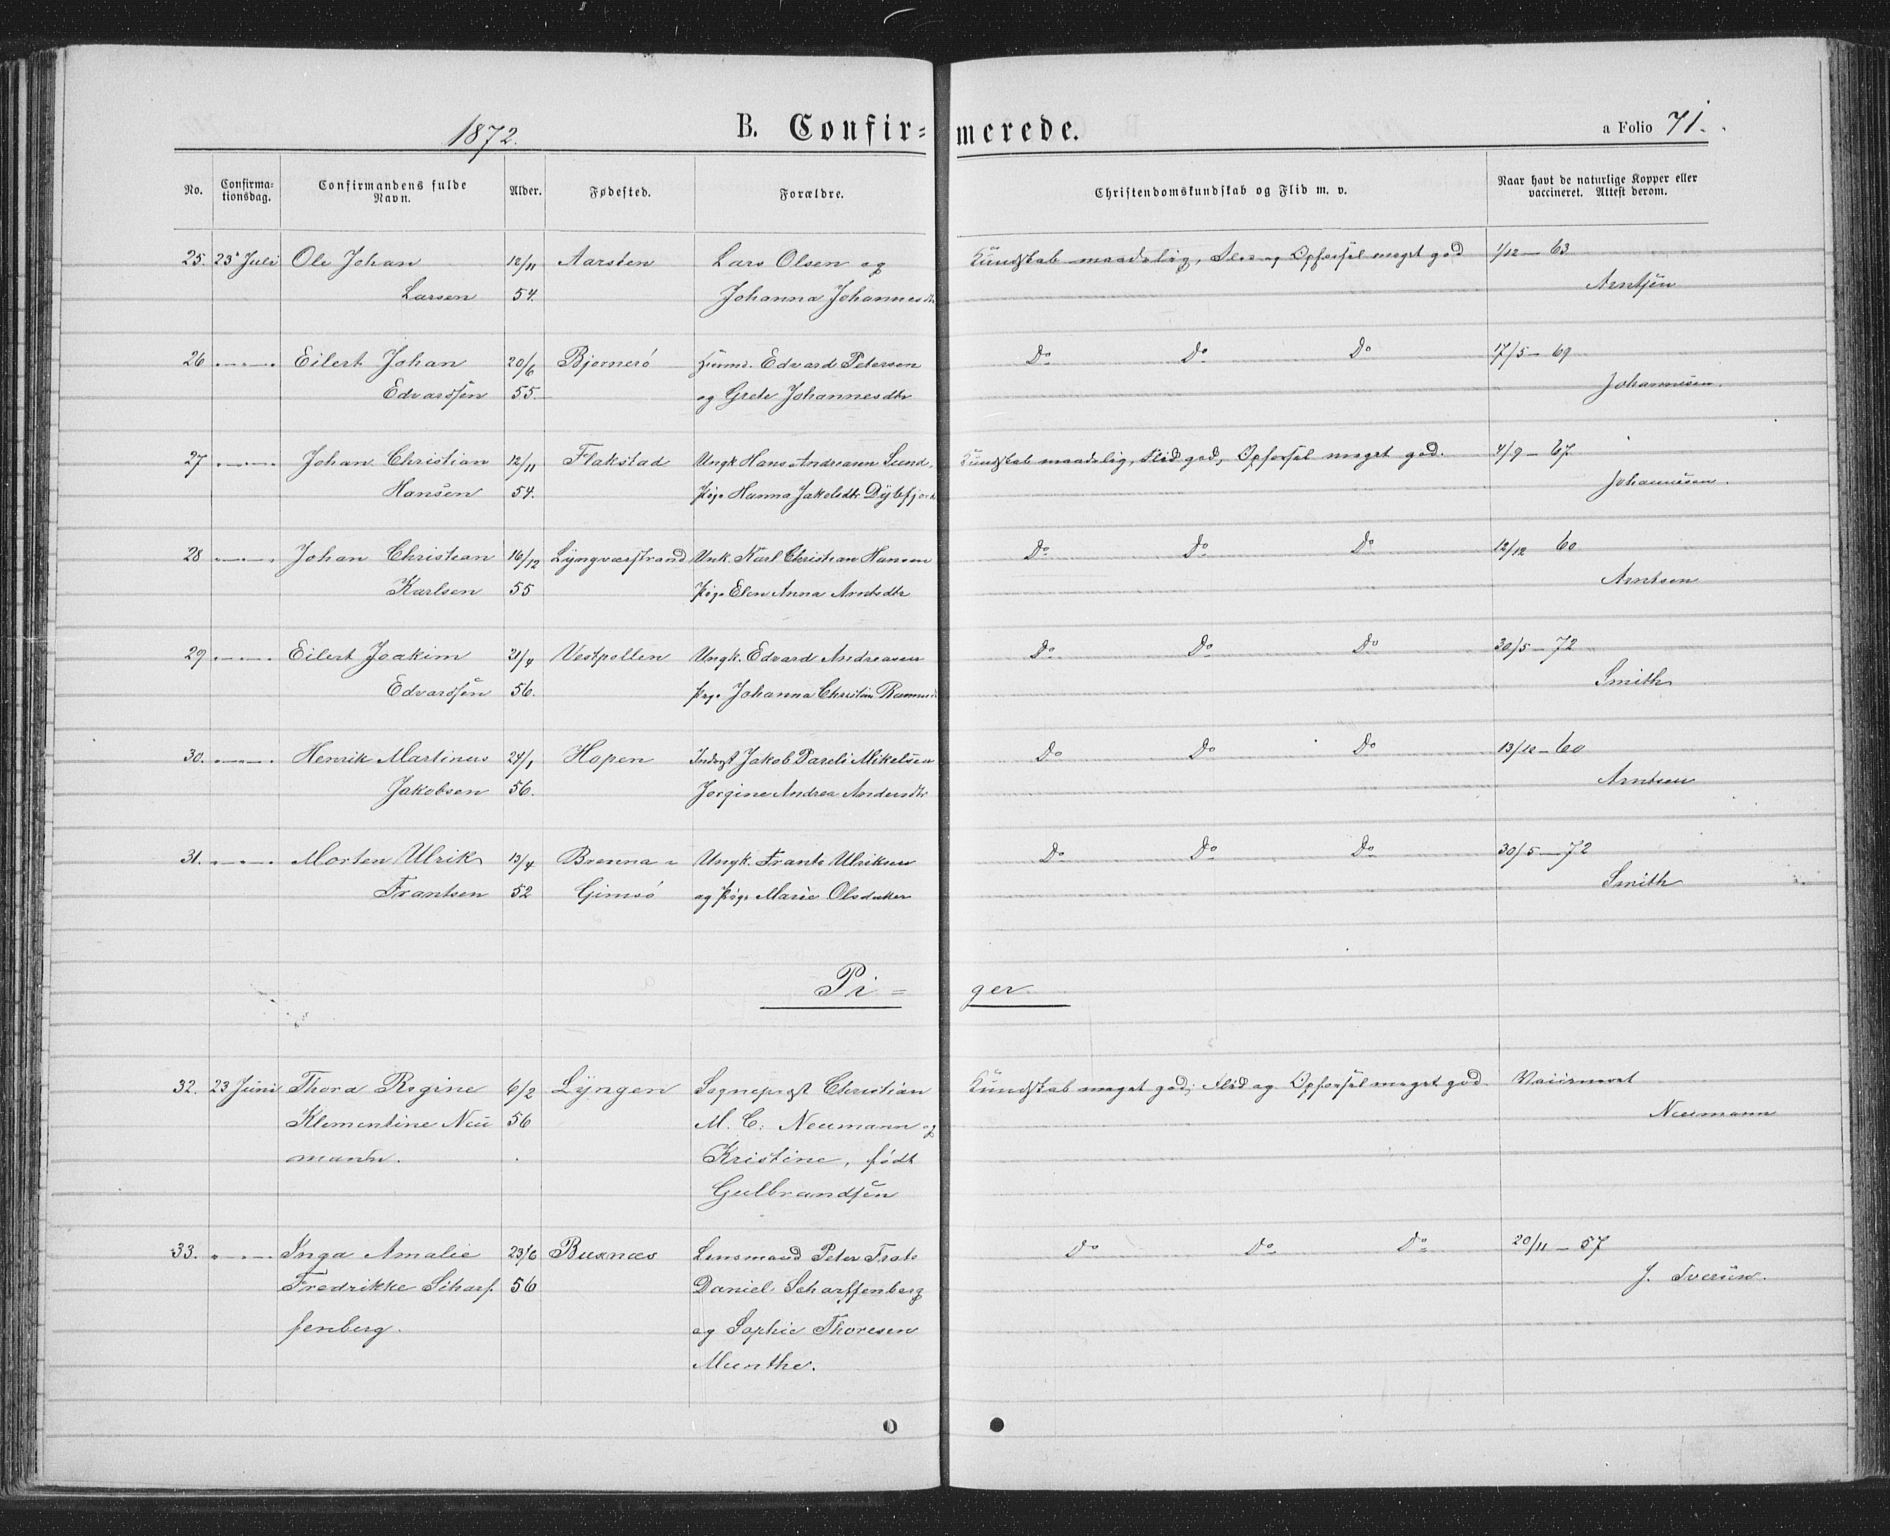 1872. B. Confir= merede. a Folio 71.
No. Confirma= Confirmandens fulde Alder. Fødested. Forældre. Christendomskundskab og Flid m. v. Naar havt de naturlige Kopper eller
tionsdag. Navn. vaccineret. Attest derom.
25. 23 Juli Ole Johan 12/11 Aarsten Lars Olsen og Kundskab maadelig, Flid og Opførsel meget god 1/12 — 63
Larsen 54. Johanna Johannesdtr Arntsen
26 Eilert Johan 20/6 Bjørnerö Huusmd. Edvard Petersen Do Do Do 17/5 — 69
Edvardsen 55. og Grete Johannesdtr Johannesen.
27 Johan Christian 12/11 Flakstad Ungk Hans Andreasen Sund, Kundskab maadelig, Flid god, Opførsel meget god. 4/9 — 67
Hansen 54. Pige Hanna Jakobsdtr Dybfjord Johannesen.
28 Johan Christian 16/12 Lyngværstrand Unk. Karl Christian Hansen Do Do Do 12/12 60
Karlsen 55 Pige Elen Anna Arntsdtr Arntsen
29 Eilert Joakim 21/4 Vestpollen Ungk. Edvard Andreasen Do Do Do 30/5 — 72
Edvardsen 56. Pige Johanna Christine Smith
30. Henrik Martinus 24/1 Hopen Inderst Jakob Pareli Mikelsen Do Do Do 13/12 — 60
Jakobsen 56. Jørgine Andrea Andersdtr Arntsen
31. Morten Ulrik 13/4 Brenna Ungk. Frants Ulriksen Do Do Do 30/5 — 72
Frantsen 52 Gimsö og Pige Marie Olsdatter Smith
Pi = ger
32. 23 Juni Thora Regine 6/2 Lyngen Sogneprest Christian Kundskab meget god; Flid og Opførsel meget god
Klementine Neu 56 M. C. Neumann og Neumann
mann. Kristine, født
Gulbrandsen
33. Inga Amalie 23/6 Buxnæs Lensmand Peter Do Do Do 20/11 — 57
Fredrikke Scharf 56 Daniel Scharffenberg
fenberg. og Sophie Thoresen
Munthe.